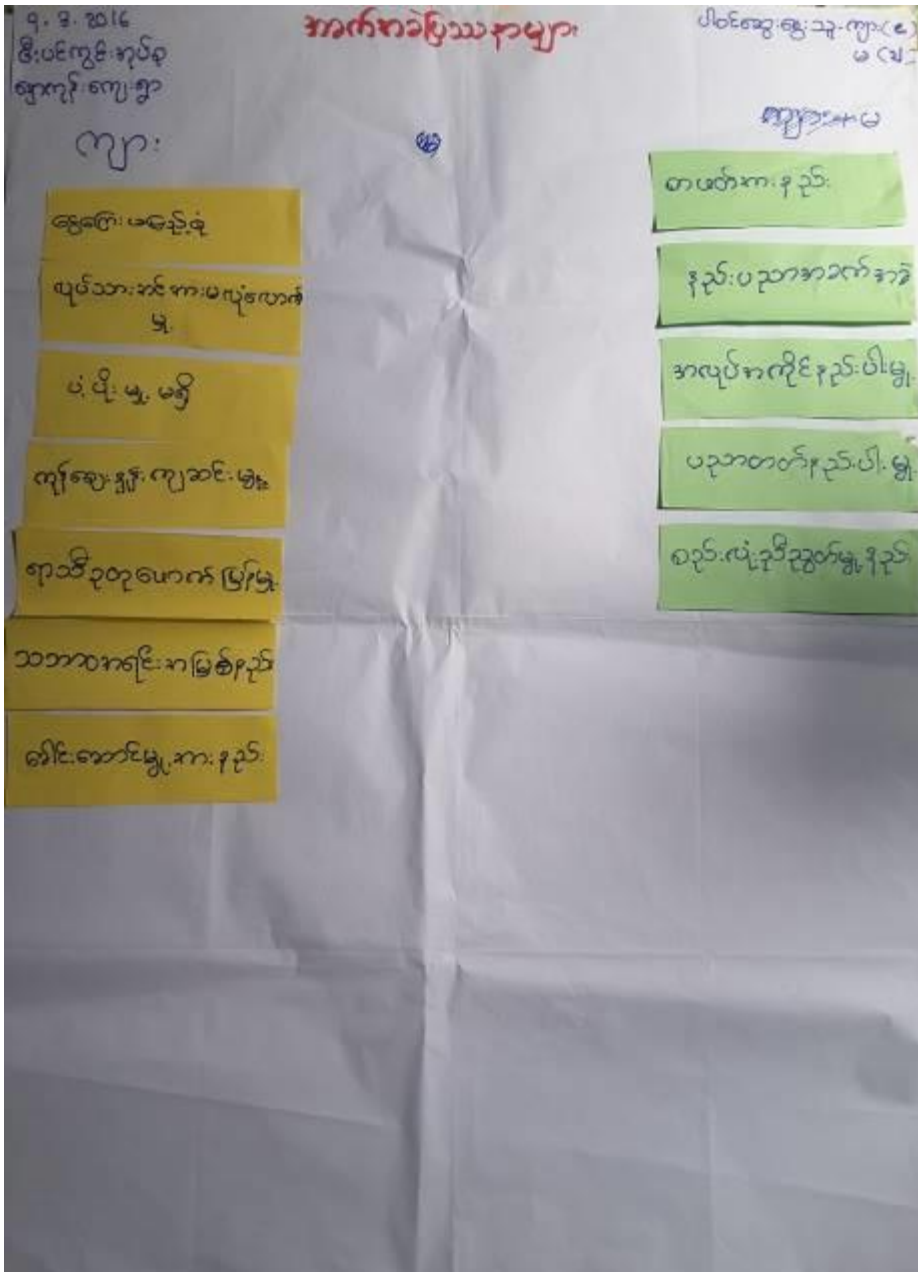 ၇.၃.2016
ဇီးပင်ကွင်းအုပ်စု
ချောကုန်းကျေးရွာ
အခက်အခဲပြဿနာများ
ပါဝင်ဆွေးနွေးသူ-ကျား(၉)
မ
ကျား
မ
ငွေကြေးမပြည့်စုံ
လုပ်သားအင်အားမလုံလောက်
မှု
ပံ့ပိုးမှု မရှိ
ကုန်ဈေးနှုန်းကျဆင်းမှု
ရာသီဥတုဖောက်ပြန်မှု
သဘာဝအရင်းအမြစ်နည်း
ခေါင်းဆောင်မှုအားနည်း
စာဖတ်အားနည်း
နည်းပညာအခက်အခဲ
အလုပ်အကိုင်နည်းပါးမှု
ပညာတတ်နည်းပါးမှု
စည်းလုံးညီညွတ်မှုနည်း